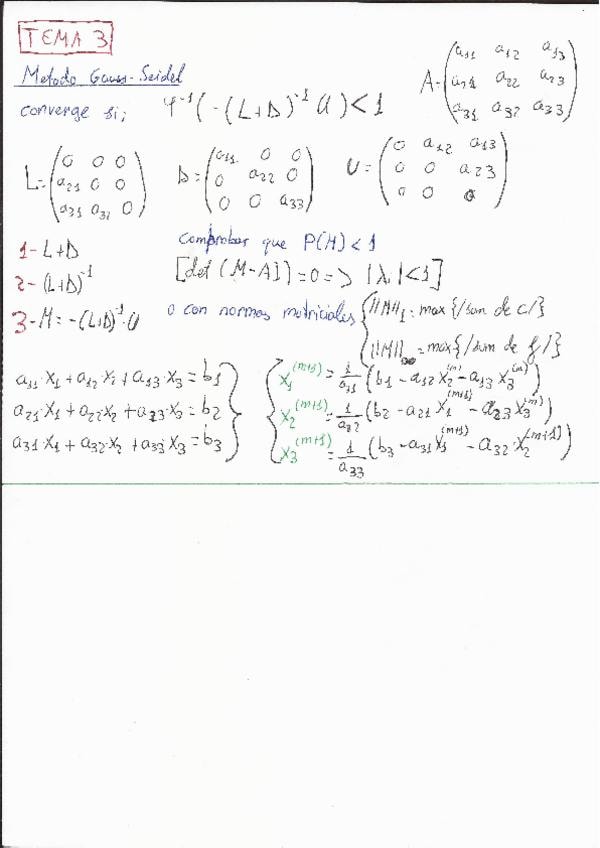 TEMA 3
Metodo Gauss-Seidel
converge si; φ⁻¹(-(L+D)⁻¹ U) < 1
A = (a11 a12 a13
a21 a22 a23
a31 a32 a33)
L = (0 0 0
a21 0 0
a31 a32 0)
D = (a11 0 0
0 a22 0
0 0 a33)
U = (0 a12 a13
0 0 a23
0 0 0)
1- L+D
2- (L+D)⁻¹
3- M = -(L+D)⁻¹·U
comprobar que P(M) < 1
[det (M-λI) = 0 => |λi| < 1]
o con normas matriciales { ||M||1 = max{/sum de c/}
||M||∞ = max{/sum de f/}
a11·x1 + a12·x2 + a13·x3 = b1
a21·x1 + a22·x2 + a23·x3 = b2
a31·x1 + a32·x2 + a33·x3 = b3
x1^(m+1) = 1/a11 (b1 - a12 x2^(m) - a13 x3^(m))
x2^(m+1) = 1/a22 (b2 - a21 x1^(m+1) - a23 x3^(m))
x3^(m+1) = 1/a33 (b3 - a31 x1^(m+1) - a32·x2^(m+1))